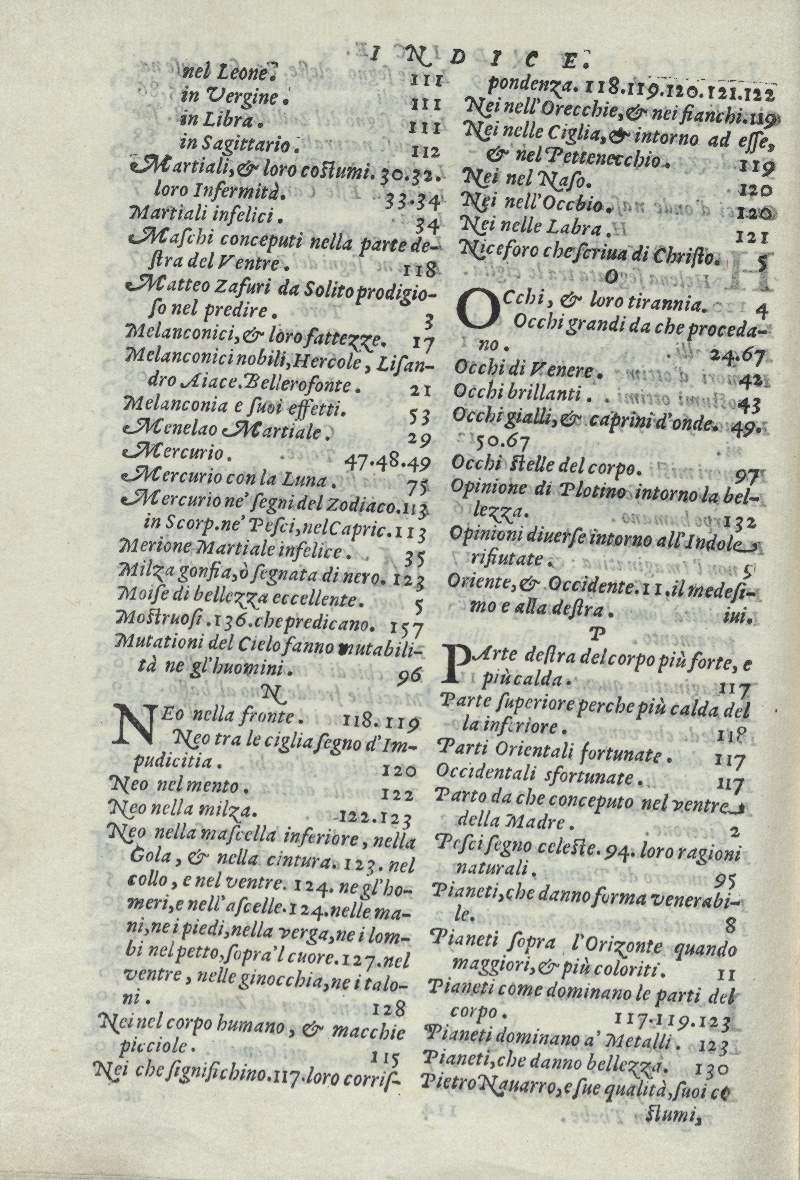 INDICE.
nel Leone. 111
in Vergine. 111
in Libra. 111
in Sagittario. 112
Martiali, & loro coſtumi. 30.32.
loro Infermità. 33.34
Martiali infelici. 34
Maſchi conceputi nella parte de-
ſtra del Ventre. 118
Matteo Zafuri da Solito prodigio-
ſo nel predire. 3
Melanconici, & loro fattezze. 17
Melanconici nobili, Hercole, Liſan-
dro Aiace. Bellerofonte. 21
Melanconia e ſuoi effetti. 53
Menelao Martiale. 29
Mercurio. 47.48.49
Mercurio con la Luna. 75
Mercurio ne' ſegni del Zodiaco. 113
in Scorp. ne' Peſci, nel Capric. 113
Merione Martiale infelice. 35
Milza gonfia, ò ſegnata di nero. 123
Moiſe di bellezza eccellente. 5
Moſtruoſi. 136. che predicano. 157
Mutationi del Cielo fanno mutabili-
tà ne gl'huomini. 96
N
NEo nella fronte. 118.119
Neo tra le ciglia ſegno d'Im-
pudicitia. 120
Neo nel mento. 122
Neo nella milza. 122.123
Neo nella maſcella inferiore, nella
Gola, & nella cintura. 123. nel
collo, e nel ventre. 124. ne gl'ho-
meri, e nell'aſcelle. 124. nelle ma-
ni, ne i piedi, nella verga, ne i lom-
bi nel petto, ſopra'l cuore. 127. nel
ventre, nelle ginocchia, ne i talo-
ni. 128
Nei nel corpo humano, & macchie
picciole. 115
Nei che ſignifichino. 117. loro corriſ-
pondenza. 118.119.120.121.122
Nei nell'Orecchie, & nei fianchi. 119
Nei nelle Ciglia, & intorno ad eſſe,
& nel Pettenecchio. 119
Nei nel Naſo. 120
Nei nell'Occhio. 120
Nei nelle Labra. 121
Niceforo che ſcriua di Chriſto. 5
O
OCchi, & loro tirannia. 4
Occhi grandi da che proceda-
no. 24.67
Occhi di Venere. 42
Occhi brillanti. 43
Occhi gialli, & caprini d'onde. 49.
50.67
Occhi ſtelle del corpo. 97
Opinione di Plotino intorno la bel-
lezza. 132
Opinioni diuerſe intorno all'Indole
rifiutate. 5
Oriente, & Occidente. 11. il medeſi-
mo e alla deſtra. iui.
P
PArte deſtra del corpo più forte, e
più calda. 117
Parte ſuperiore perche più calda del
la inferiore. 118
Parti Orientali fortunate. 117
Occidentali sfortunate. 117
Parto da che conceputo nel ventre
della Madre. 2
Peſci ſegno celeſte. 94. loro ragioni
naturali. 95
Pianeti, che danno forma venerabi-
le. 8
Pianeti ſopra l'Orizonte quando
maggiori, & più coloriti. 11
Pianeti come dominano le parti del
corpo. 117.119.123
Pianeti dominano a' Metalli. 123
Pianeti, che danno bellezza. 130
Pietro Nauarro, e ſue qualità, ſuoi co
ſtumi,